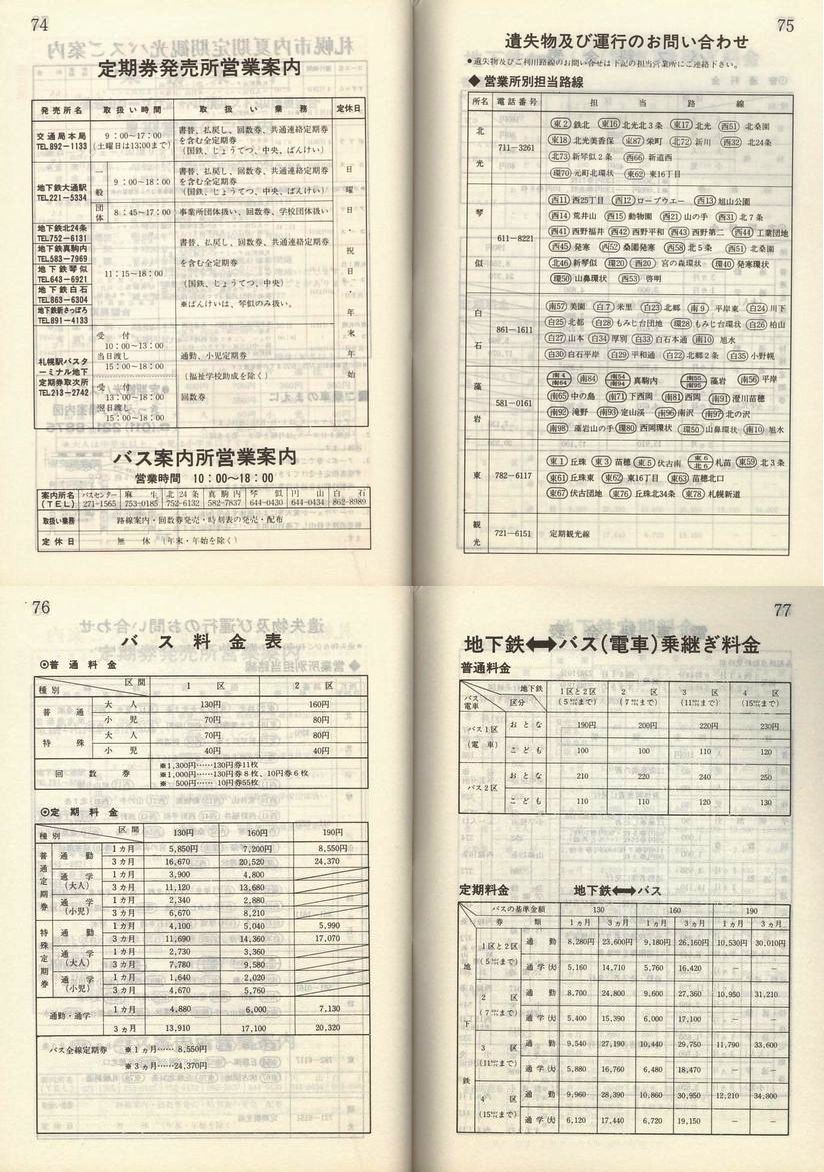 74
定期券発売所営業案内
発売所名 取扱い時間 取扱い業務 定休日
交通局本局
TEL892-1133
9：00〜17：00
(土曜日は13:00まで)
書替、払戻し、回数券、共通連絡定期券
を含む全定期券
(国鉄、じょうてつ、中央、ばんけい)
地下鉄大通駅
TEL221-5334
一般 9：00〜18：00
書替、払戻し、回数券、共通連絡定期券
を含む全定期券
(国鉄、じょうてつ、中央、ばんけい)
団体 8：45〜17：00 事業所団体扱い、回数券、学校団体扱い
地下鉄北24条
TEL752-6131
地下鉄真駒内
TEL583-7969
地下鉄琴似
TEL643-6921
地下鉄白石
TEL863-6304
地下鉄新さっぽろ
TEL891-4133
11：15〜18：00
書替、払戻し、回数券、共通連絡定期券
を含む全定期券
(国鉄、じょうてつ、中央)
※ばんけいは、琴似のみ扱い。
札幌駅バスターミナル地下
定期券取次所
TEL213-2742
受付
10：00〜13：00
当日渡し
15：00〜18：00
受付
13：00〜18：00
翌日渡し
15：00〜18：00
通勤、小児定期券
(福祉学校助成を除く)
回数券
日曜日・祝日・年末年始
バス案内所営業案内
営業時間 10：00〜18：00
案内所名 バスセンター 麻生 北24条 真駒内 琴似 円山 白石
(TEL) 271-1565 753-0185 752-6132 582-7837 644-0430 644-0434 862-8989
取扱い業務 路線案内・回数券発売・時刻表の発売・配布
定休日 無休 (年末・年始を除く)
75
遺失物及び運行のお問い合わせ
●遺失物及びご利用路線のお問い合せは下記の担当営業所にご連絡下さい。
◆営業所別担当路線
所名 電話番号 担当路線
北光 711-3261
東2 鉄北 東16 北光北3条 東17 北光 西51 北桑園
東18 北光美香保 東87 栄町 北72 新川 西32 北24条
北73 新琴似2条 西66 新道西
環70 元町北環状 東62 東16丁目
琴似 611-8221
西11 西25丁目 西12 ロープウエー 西13 旭山公園
西14 荒井山 西15 動物園 西21 山の手 西31 北7条
西41 西野福井 西42 西野平和 西43 西野第二 西44 工業団地
西45 発寒 西52 桑園発寒 西58 北5条 西51 北桑園
北46 新琴似 環20 西20 宮の森環状 環40 発寒環状
環50 山鼻環状 西53 啓明
白石 861-1611
南57 美園 白7 米里 白23 北郷 南9 平岸東 白24 川下
白25 北都 白28 もみじ台団地 環28 もみじ台環状 白26 柏山
白27 山本 白34 厚別 白33 白石本通 南10 旭水
白30 白石平岸 白29 平和通 白22 北郷2条 白35 小野幌
藻岩 581-0161
南4 南64 南84 南54 南94 真駒内 南55 南95 藻岩 南56 平岸
南65 中の島 南71 下西岡 南81 西岡 南91 澄川苗穂
南92 滝野 南93 定山渓 南96 南沢 南97 北の沢
南98 藻岩山の手 環80 西岡環状 環50 山鼻環状 南10 旭水
東 782-6117
東1 丘珠 東3 苗穂 東5 伏古南 東6 北6 札苗 東59 北3条
東61 丘珠東 東62 東16丁目 東63 苗穂北口
東67 伏古団地 東76 丘珠北34条 東78 札幌新道
観光 721-6151 定期観光線
76
バス料金表
⊙普通料金
種別 区間 1区 2区
普通 大人 130円 160円
小児 70円 80円
特殊 大人 70円 80円
小児 40円 40円
回数券
※1,300円……130円券11枚
※1,000円……130円券8枚、10円券6枚
※ 500円…… 10円券55枚
⊙定期料金
種別 区間 130円 160円 190円
普通定期券 通勤 1カ月 5,850円 7,200円 8,550円
3カ月 16,670 20,520 24,370
通学(大人) 1カ月 3,900 4,800
3カ月 11,120 13,680
通学(小児) 1カ月 2,340 2,880
3カ月 6,670 8,210
特殊定期券 通勤 1カ月 4,100 5,040 5,990
3カ月 11,690 14,360 17,070
通学(大人) 1カ月 2,730 3,360
3カ月 7,780 9,580
通学(小児) 1カ月 1,640 2,020
3カ月 4,670 5,760
通勤・通学 1カ月 4,880 6,000 7,130
3カ月 13,910 17,100 20,320
バス全線定期券 ※1ヵ月…… 8,550円
※3ヵ月……24,370円
77
地下鉄⟷バス(電車)乗継ぎ料金
普通料金
バス電車 地下鉄 区分 1区と2区(5㌔まで) 2区(7㌔まで) 3区(11㌔まで) 4区(15㌔まで)
バス1区(電車) おとな 190円 200円 220円 230円
こども 100 100 110 120
バス2区 おとな 210 220 240 250
こども 110 110 120 130
定期料金 地下鉄⟷バス
バスの基準金額 130 160 190
券類 1ヵ月 3ヵ月 1ヵ月 3ヵ月 1ヵ月 3ヵ月
地下鉄
1区と2区(5㌔まで) 通勤 8,280円 23,600円 9,180円 26,160円 10,530円 30,010円
通学(大) 5,160 14,710 5,760 16,420 － －
2区(7㌔まで) 通勤 8,700 24,800 9,600 27,360 10,950 31,210
通学(大) 5,400 15,390 6,000 17,100 － －
3区(11㌔まで) 通勤 9,540 27,190 10,440 29,750 11,790 33,600
通学(大) 5,880 16,760 6,480 18,470 － －
4区(15㌔まで) 通勤 9,960 28,390 10,860 30,950 12,210 34,800
通学(大) 6,120 17,440 6,720 19,150 － －